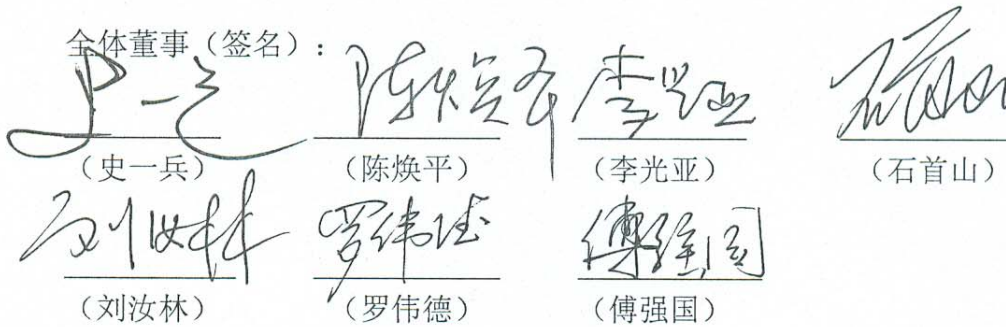 全体董事（签名）：
史一兵 陈焕平 李光亚 石首山
（史一兵） （陈焕平） （李光亚） （石首山）
刘汝林 罗伟德 傅强国
（刘汝林） （罗伟德） （傅强国）